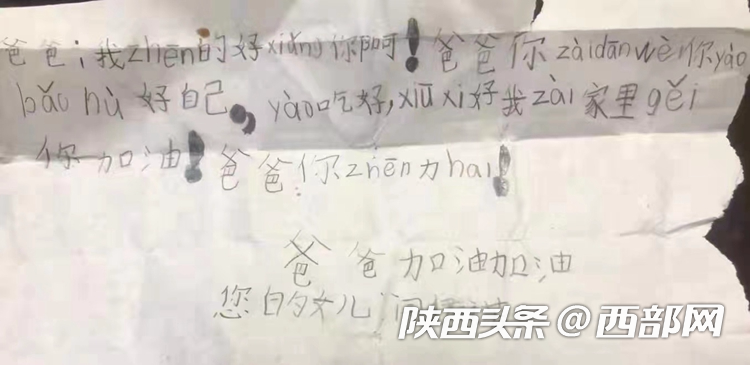 爸爸；我zhēn的好xiǎng你阿！爸爸你zàidānwèi你yào
bǎo hù好自己，yào吃好，xiū xi好我zài家里gěi
你加油！爸爸你zhēn力hai！
爸爸加油加油
您的女儿
陕西头条@西部网